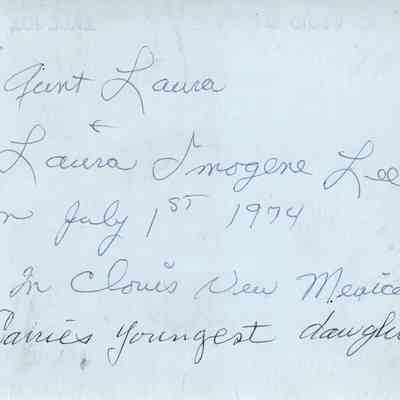 Aunt Laura
←
Laura Imogene Lee
on July 1ST 1974
In Clovis New Mexico
Carries youngest daugh